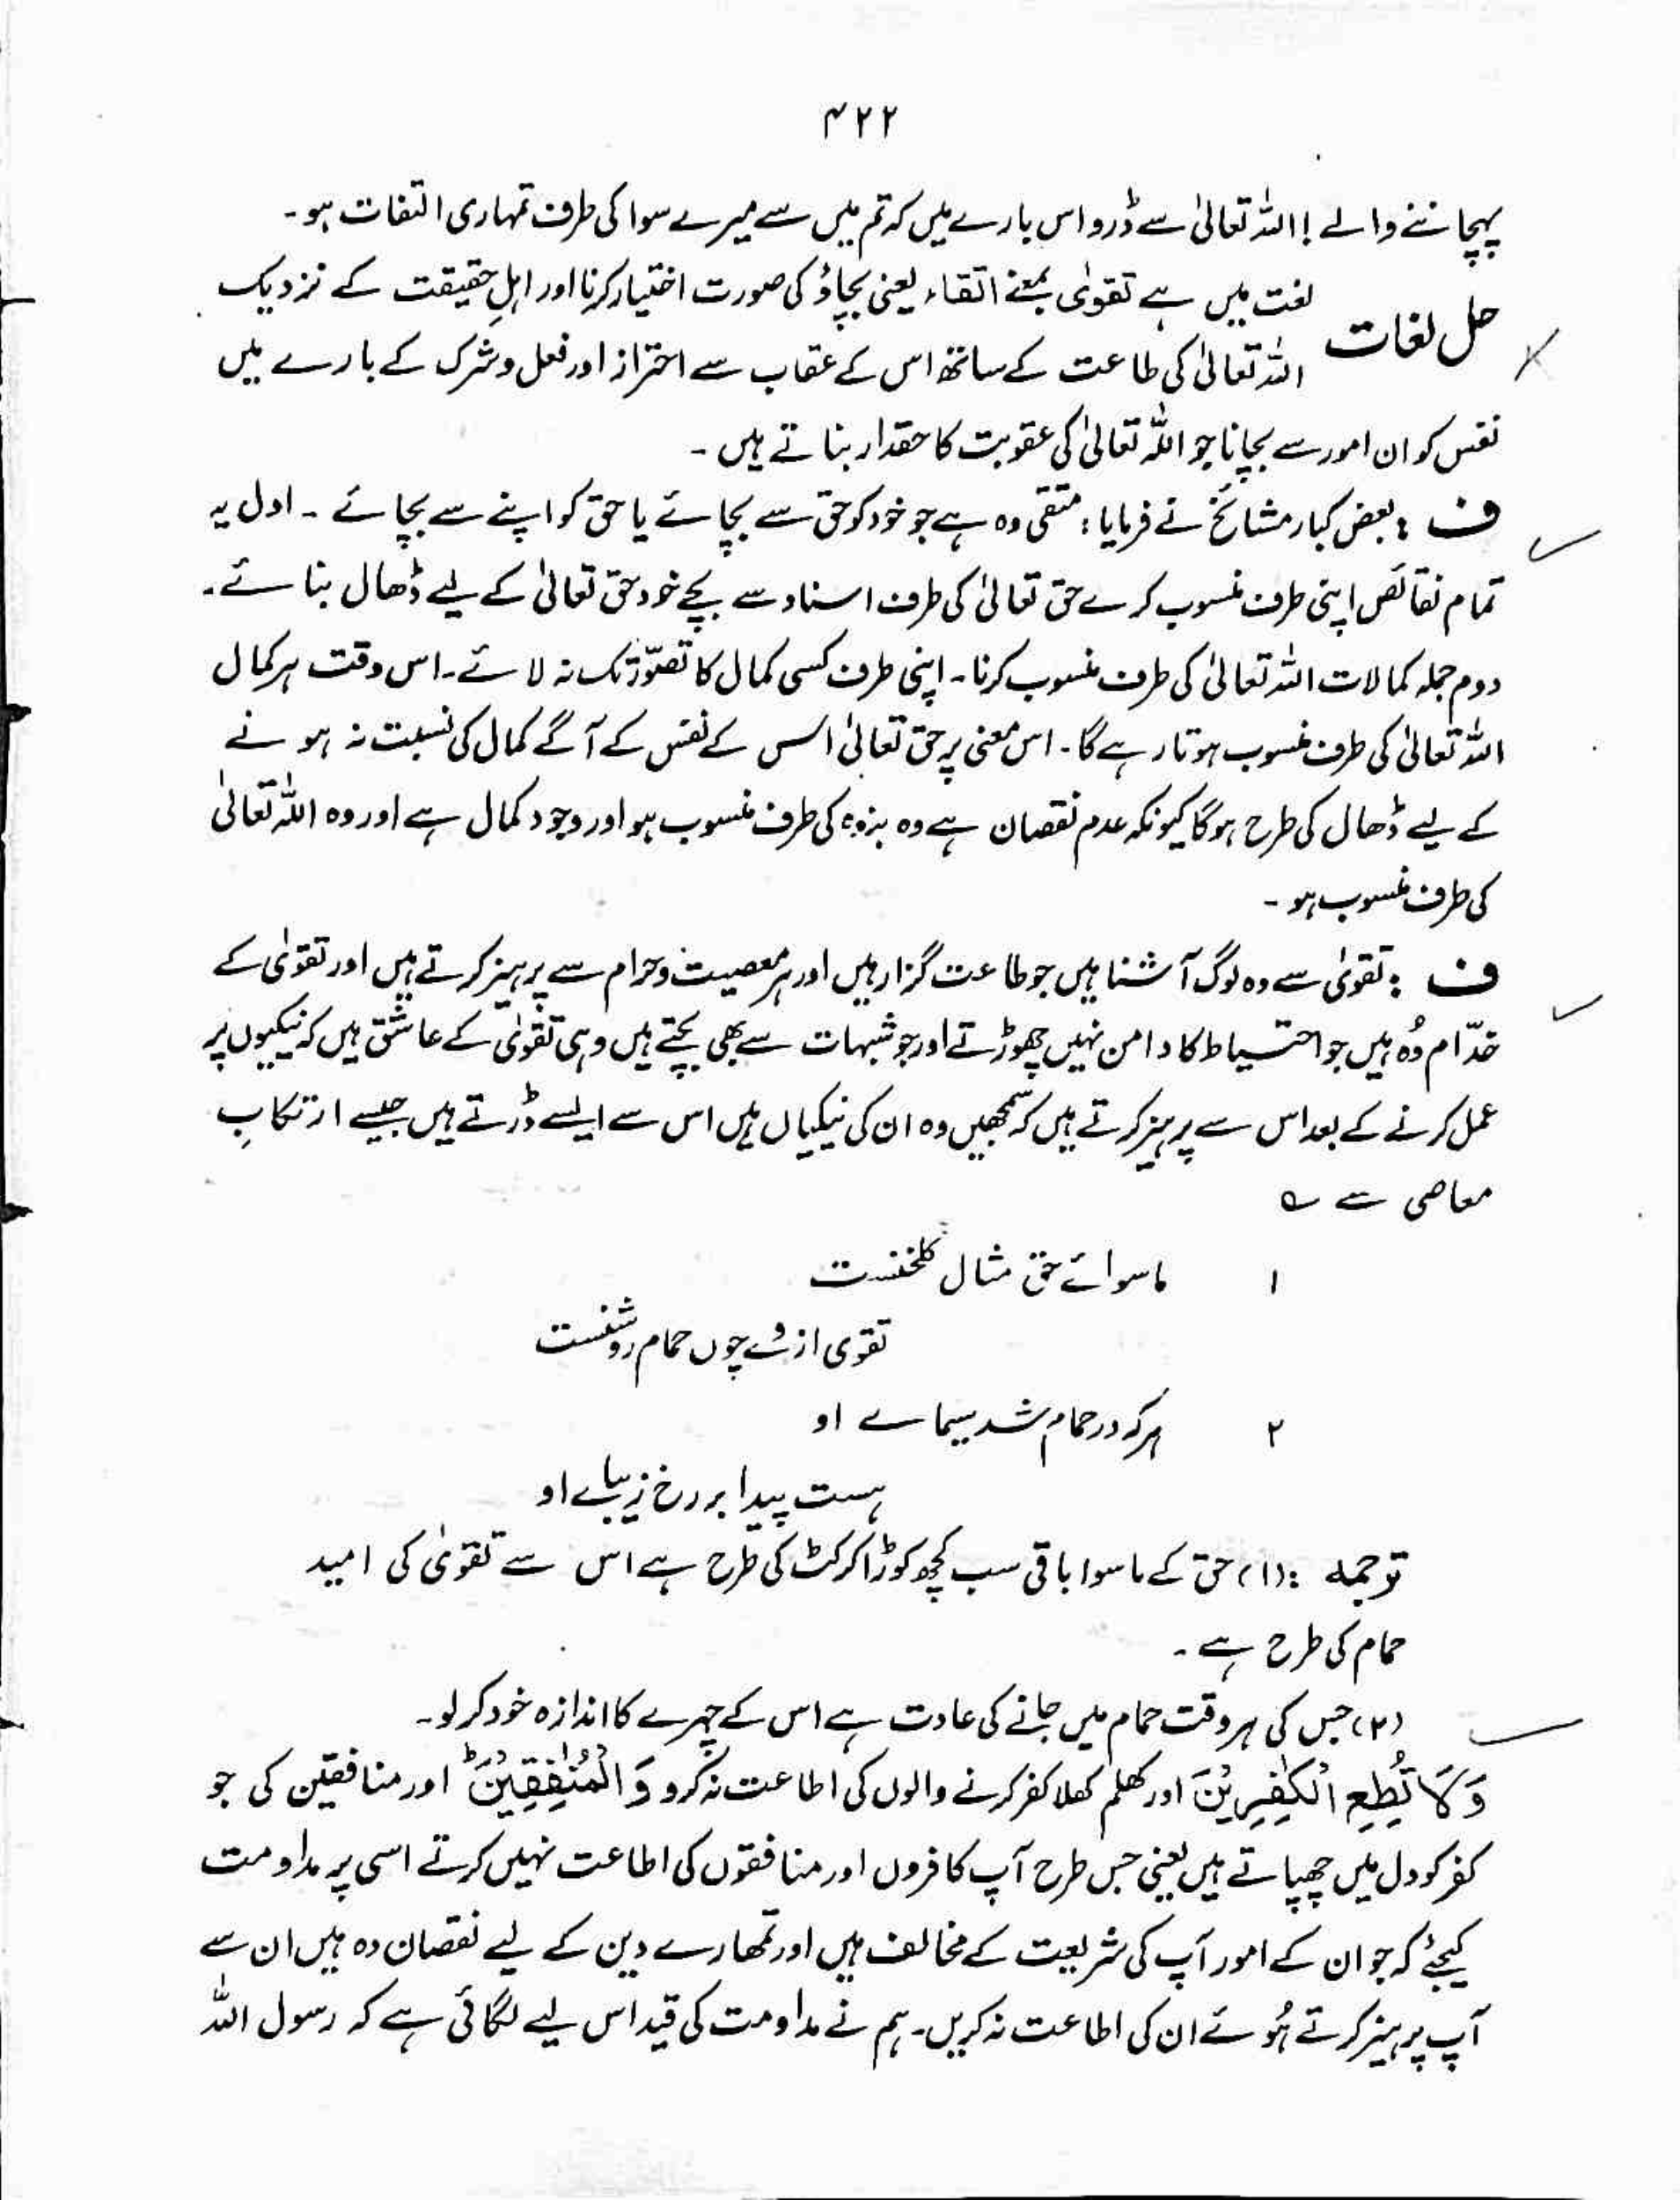 ۴۲۲
پہچاننے والے ! اللہ تعالیٰ سے ڈرو اس بارے میں کہ تم میں سے میرے سوا کی طرف تمہاری التفات ہو۔
حل لغات لغت میں ہے تقوٰی بمعنے اتقاء یعنی بچاؤ کی صورت اختیار کرنا اور اہلِ حقیقت کے نزدیک
اللہ تعالیٰ کی طاعت کے ساتھ اس کے عقاب سے احتراز اور فعل و شرک کے بارے میں
نفس کو ان امور سے بچانا جو اللہ تعالیٰ کی عقوبت کا حقدار بناتے ہیں ۔
ف : بعض کبار مشائخ نے فرمایا : متقی وہ ہے جو خود کو حق سے بچائے یا حق کو اپنے سے بچائے ۔ اول یہ
تمام نقائص اپنی طرف منسوب کرے حق تعالیٰ کی طرف اسناد سے بچے خود حق تعالیٰ کے لیے ڈھال بنائے۔
دوم جملہ کمالات اللہ تعالیٰ کی طرف منسوب کرنا۔ اپنی طرف کسی کمال کا تصوّر تک نہ لائے۔ اس وقت ہر کمال
اللہ تعالیٰ کی طرف منسوب ہوتا رہے گا۔ اس معنی پر حق تعالیٰ اس کے نفس کے آگے کمال کی نسبت نہ ہونے
کے لیے ڈھال کی طرح ہوگا کیونکہ عدم نقصان ہے وہ بندہ کی طرف منسوب ہو اور وجود کمال ہے اور وہ اللہ تعالیٰ
کی طرف منسوب ہو ۔
ف : تقوٰی سے وہ لوگ آشنا ہیں جو طاعت گزار ہیں اور ہر معصیت و حرام سے پرہیز کرتے ہیں اور تقوٰی کے
خدّام وُہ ہیں جو احتیاط کا دامن نہیں چھوڑتے اور جو شبہات سے بھی بچتے ہیں وہی تقوٰی کے عاشق ہیں کہ نیکیوں پر
عمل کرنے کے بعد اس سے پرہیز کرتے ہیں کہ سمجھیں وہ ان کی نیکیاں ہیں اس سے ایسے ڈرتے ہیں جیسے ارتکابِ
معاصی سے ؎
۱ ماسوائے حق مثال گلخنست
تقوی ازوے چوں حمام روشنست
۲ ہر کہ در حمام شد سیماے او
ہست پیدا بر رخ زیباے او
ترجمہ : (۱) حق کے ماسوا باقی سب کچھ کوڑا کرکٹ کی طرح ہے اس سے تقوٰی کی امید
حمام کی طرح ہے ۔
(۲) جس کی ہر وقت حمام میں جانے کی عادت ہے اس کے چہرے کا اندازہ خود کر لو۔
وَلَا تُطِعِ الْكٰفِرِيْنَ اور کھلم کھلا کفر کرنے والوں کی اطاعت نہ کرو وَالْمُنٰفِقِيْنَ ؕ اور منافقین کی جو
کفر کو دل میں چھپاتے ہیں یعنی جس طرح آپ کافروں اور منافقوں کی اطاعت نہیں کرتے اسی پر مداومت
کیجئے کہ جو ان کے امور آپ کی شریعت کے مخالف ہیں اور تمھارے دین کے لیے نقصان دہ ہیں ان سے
آپ پرہیز کرتے ہُوئے ان کی اطاعت نہ کریں۔ ہم نے مداومت کی قید اس لیے لگائی ہے کہ رسول اللہ